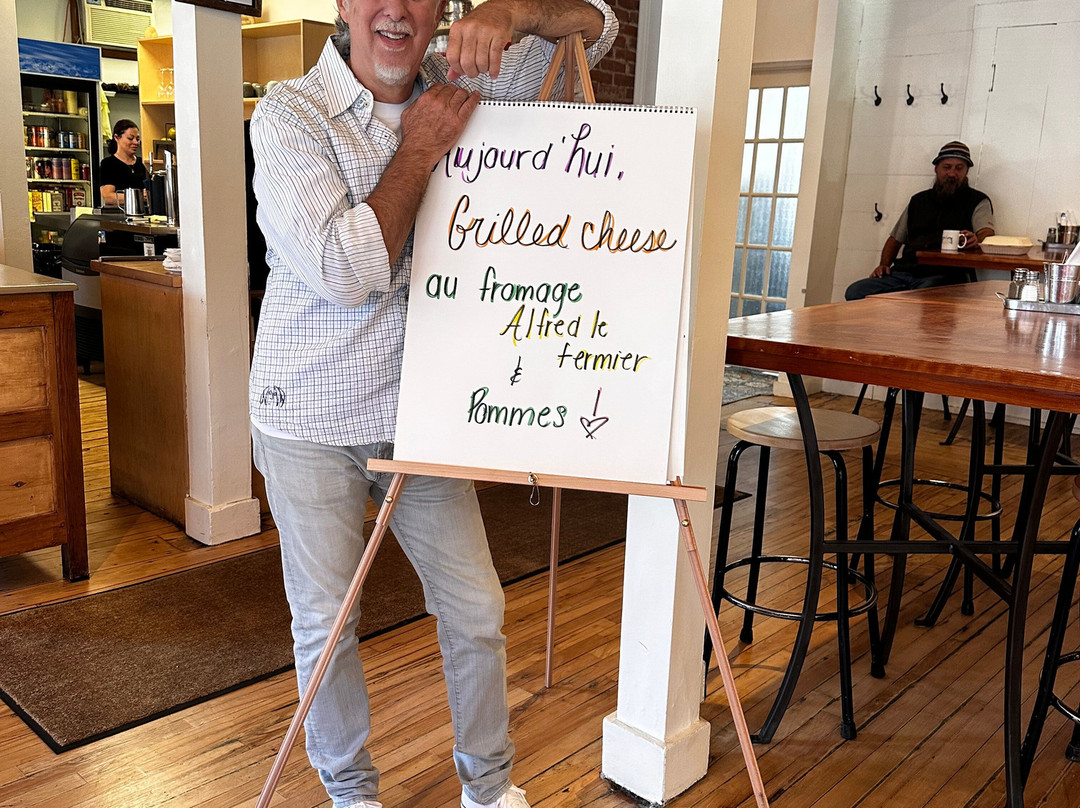 Aujourd'hui,
Grilled cheese
au fromage
Alfred le
fermier
&
Pommes